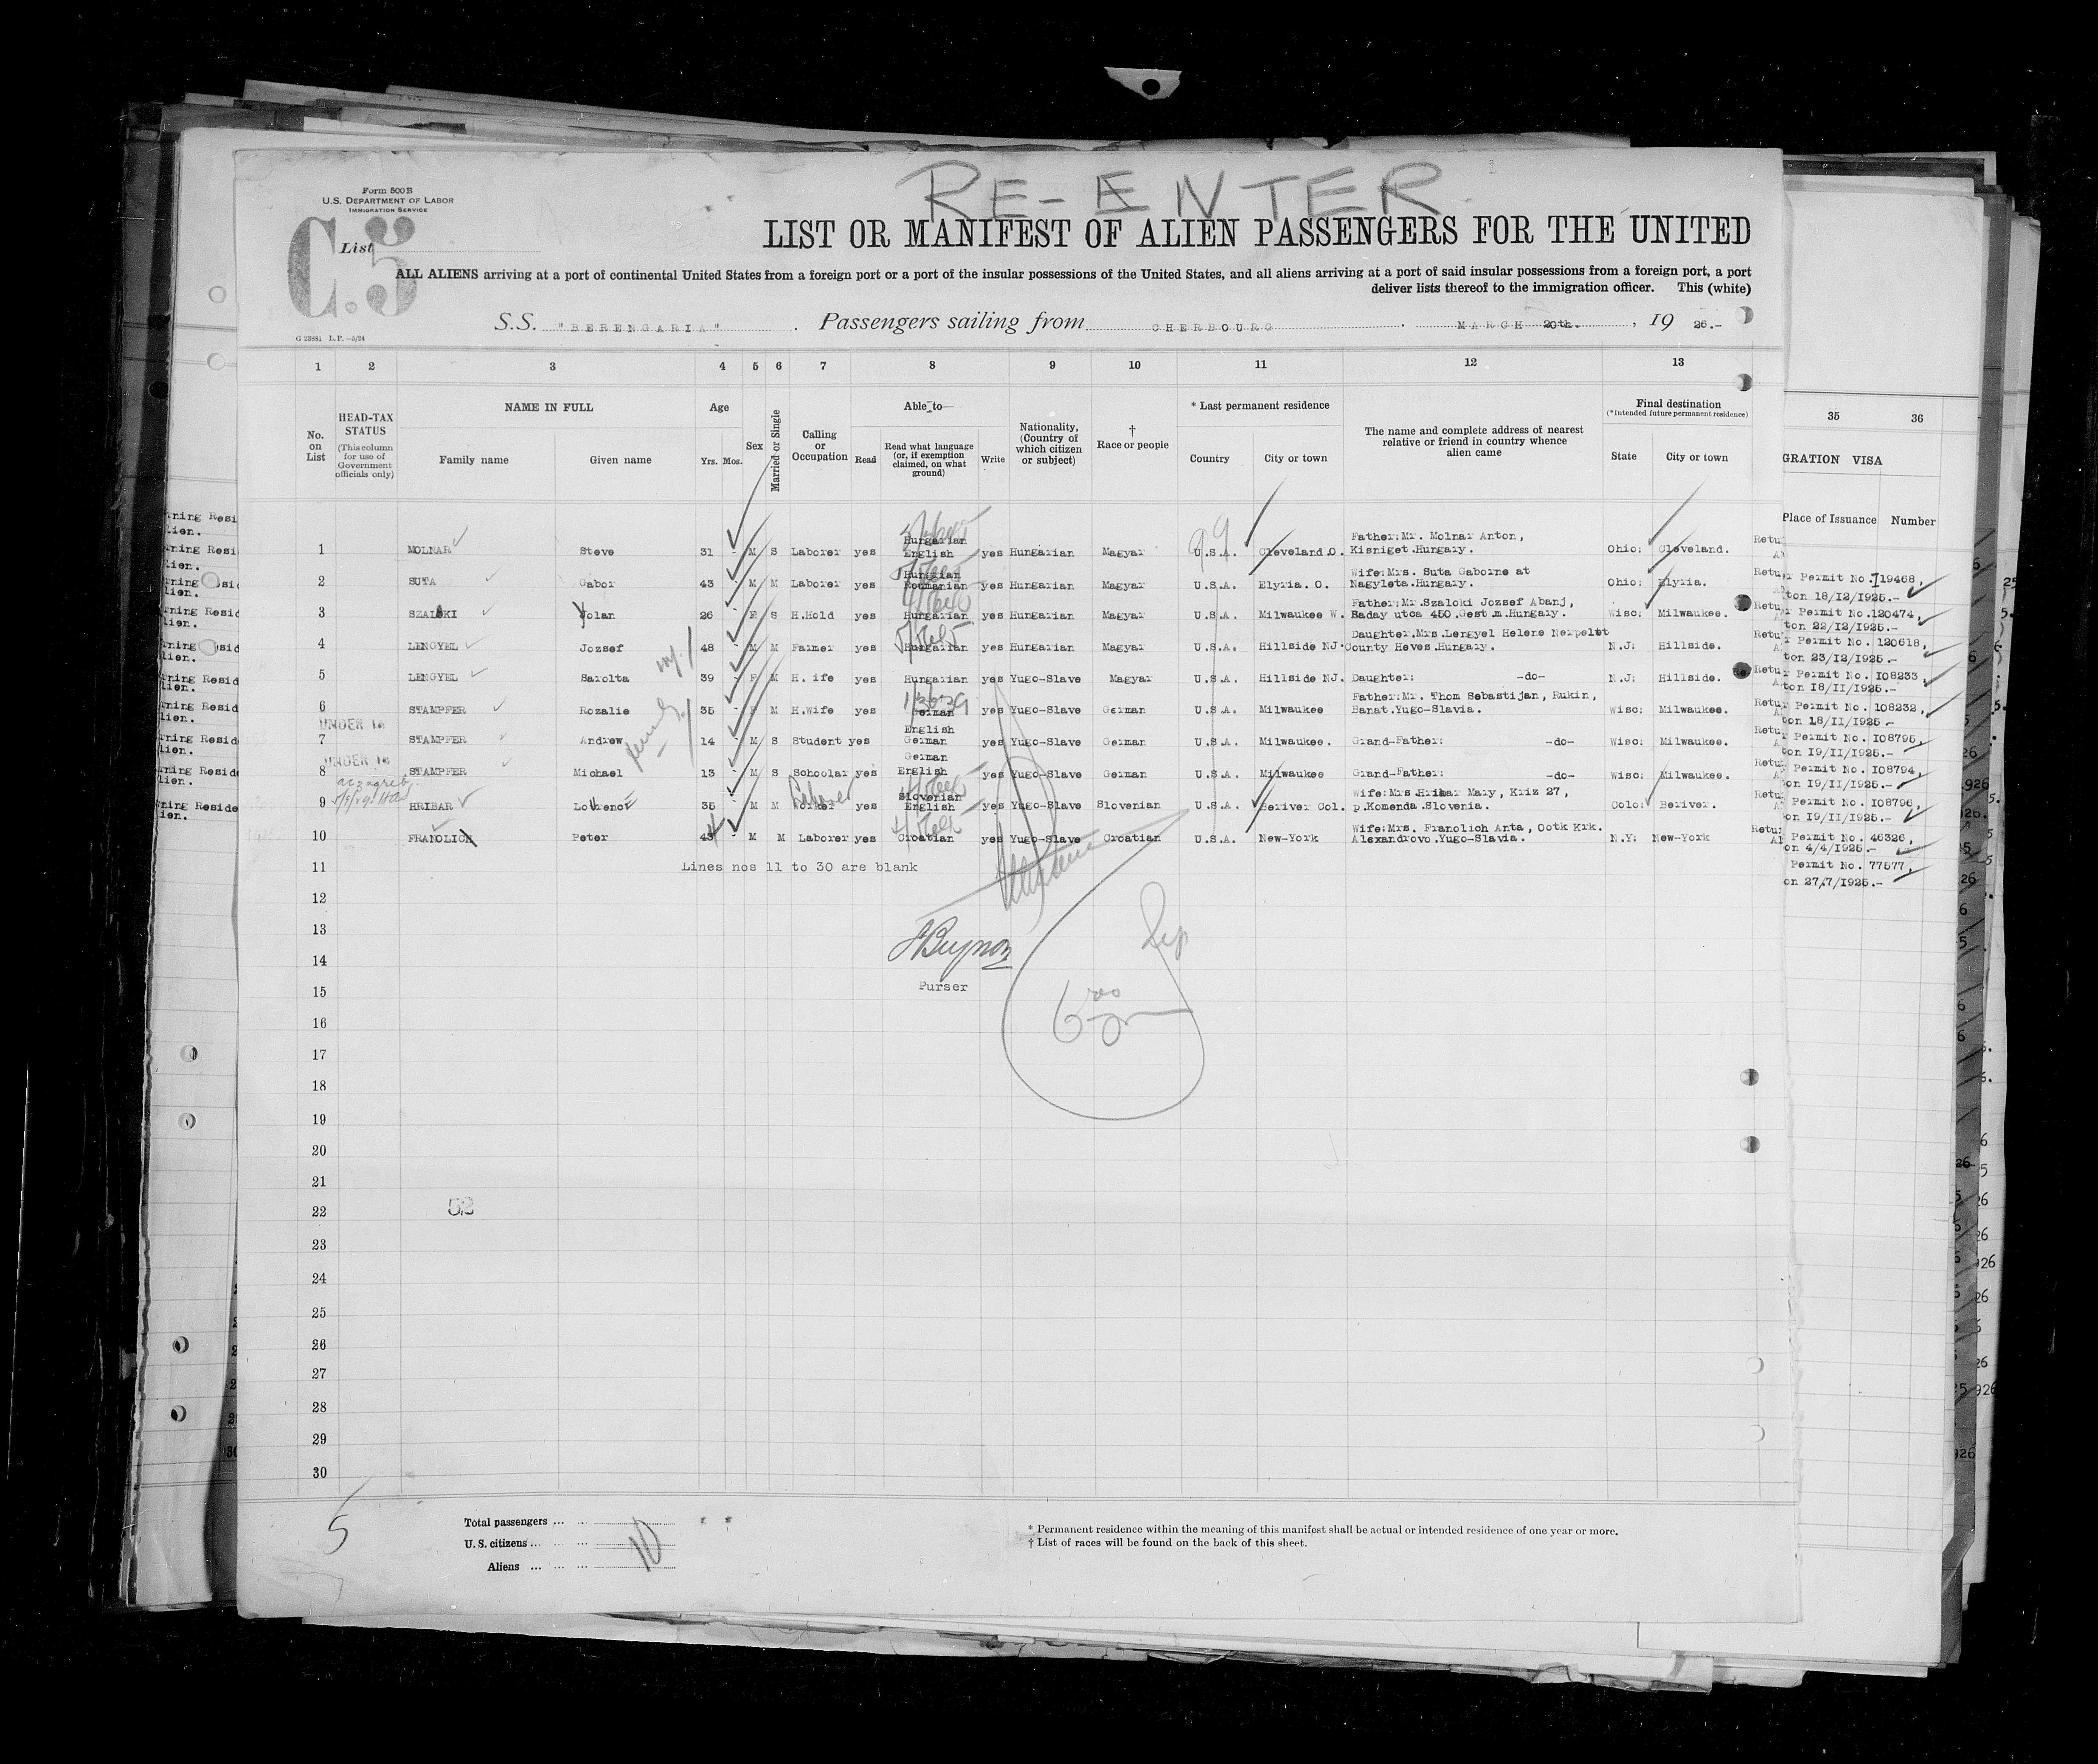 RE-ENTER
Form 500B
U.S. DEPARTMENT OF LABOR
IMMIGRATION SERVICE
C.5
List
LIST OR MANIFEST OF ALIEN PASSENGERS FOR THE UNITED
ALL ALIENS arriving at a port of continental United States from a foreign port or a port of the insular possessions of the United States, and all aliens arriving at a port of said insular possessions from a foreign port, a port
deliver lists thereof to the immigration officer. This (white)
S.S. "BERENGARIA" . Passengers sailing from CHERBOURG . MARCH 20th. , 19 26.-
G 23881 L.P. —5/24
1 2 3 4 5 6 7 8 9 10 11 12 13
35 36
No. on List
HEAD-TAX STATUS
(This column for use of Government officials only)
NAME IN FULL
Family name Given name
Age
Yrs. Mos.
Sex
Married or Single
Calling or Occupation
Able to—
Read
Read what language (or, if exemption claimed, on what ground)
Write
Nationality, (Country of which citizen or subject)
† Race or people
* Last permanent residence
Country City or town
The name and complete address of nearest relative or friend in country whence alien came
Final destination
(*Intended future permanent residence)
State City or town
GRATION VISA
Place of Issuance Number
1 MOLNAR Steve 31 M S Laborer yes Hungarian English yes Hungarian Magyar U.S.A. Cleveland O. Father:Mr. Molnar Anton, Kisniget.Hungary. Ohio: Cleveland.
2 SUTA Gabor 43 M M Laborer yes Roumanian yes Hungarian Magyar U.S.A. Elyria. O. Wife:Mrs. Suta Gaborne at Nagyleta.Hungary. Ohio: Elyria.
3 SZALOKI Yolan 26 F S H.Hold yes Hungarian yes Hungarian Magyar U.S.A. Milwaukee W. Father:Mr.Szaloki Jozsef Abanj, Baday utca 450.Gest.m.Hungary. Wisc: Milwaukee.
4 LENGYEL Jozsef 48 M M Farmer yes Hungarian yes Hungarian Magyar U.S.A. Hillside NJ. Daughter.Mrs.Lengyel Helene Nerpeltt County Heves.Hungary. N.J: Hillside.
5 LENGYEL Sarolta 39 F M H. ife yes Hungarian yes Yugo-Slave Magyar U.S.A. Hillside NJ. Daughter: -do- N.J: Hillside.
6 STAMPFER Rozalie 35 F M H.Wife yes German yes Yugo-Slave German U.S.A. Milwaukee Father:Mr. Thom Sebastijan, Rukin, Banat.Yugo-Slavia. Wisc: Milwaukee.
UNDER 16
7 STAMPFER Andrew 14 M S Student yes English German yes Yugo-Slave German U.S.A. Milwaukee. Grand-Father: -do- Wisc: Milwaukee.
UNDER 16
8 STAMPFER Michael 13 M S Schoolar yes German English yes Yugo-Slave German U.S.A. Milwaukee Grand-Father: -do- Wisc: Milwaukee.
9 HRIBAR Lovrenc 35 M M Worker yes Slovenian English yes Yugo-Slave Slovenian U.S.A. Beriver Col. Wife:Mrs.Hribar Mary, Kriz 27, p.Komenda.Slovenia. Colo: Beriver.
10 FRANOLICH Peter 43 M M Laborer yes Croatian yes Yugo-Slave Croatian U.S.A. New-York Wife:Mrs. Franolich Anta, Ootk Krk. Alexandrovo.Yugo-Slavia. N.Y: New-York
11 Lines nos 11 to 30 are blank
12
13
14
15 Purser
16
17
18
19
20
21
22 52
23
24
25
26
27
28
29
30
Permit No. 119468,
ton 18/12/1925.-
Permit No.120474,
ton 22/12/1925.-
Permit No. 120618,
ton 23/12/1925.-
Permit No. 108233,
ton 18/11/1925.-
Permit No. 108232,
on 18/11/1925.-
Permit No. 108795,
on 19/11/1925.-
Permit No. 108794,
on 19/11/1925.-
Permit No. 108796,
on 19/11/1925.-
Permit No. 46326,
on 4/4/1925.-
Permit No. 77577,
on 27/7/1925.-
5
Total passengers ... ...
U.S. citizens ... ... 10
Aliens ... ... ...
* Permanent residence within the meaning of this manifest shall be actual or intended residence of one year or more.
† List of races will be found on the back of this sheet.